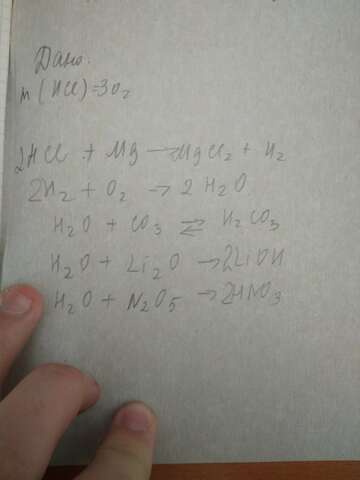 Дано:
m (HCl)=3 г
2HCl + Mg → MgCl2 + H2
2H2 + O2 → 2 H2O
H2O + CO3 ⇌ H2CO3
H2O + Li2O → 2LiOH
H2O + N2O5 → 2HNO3